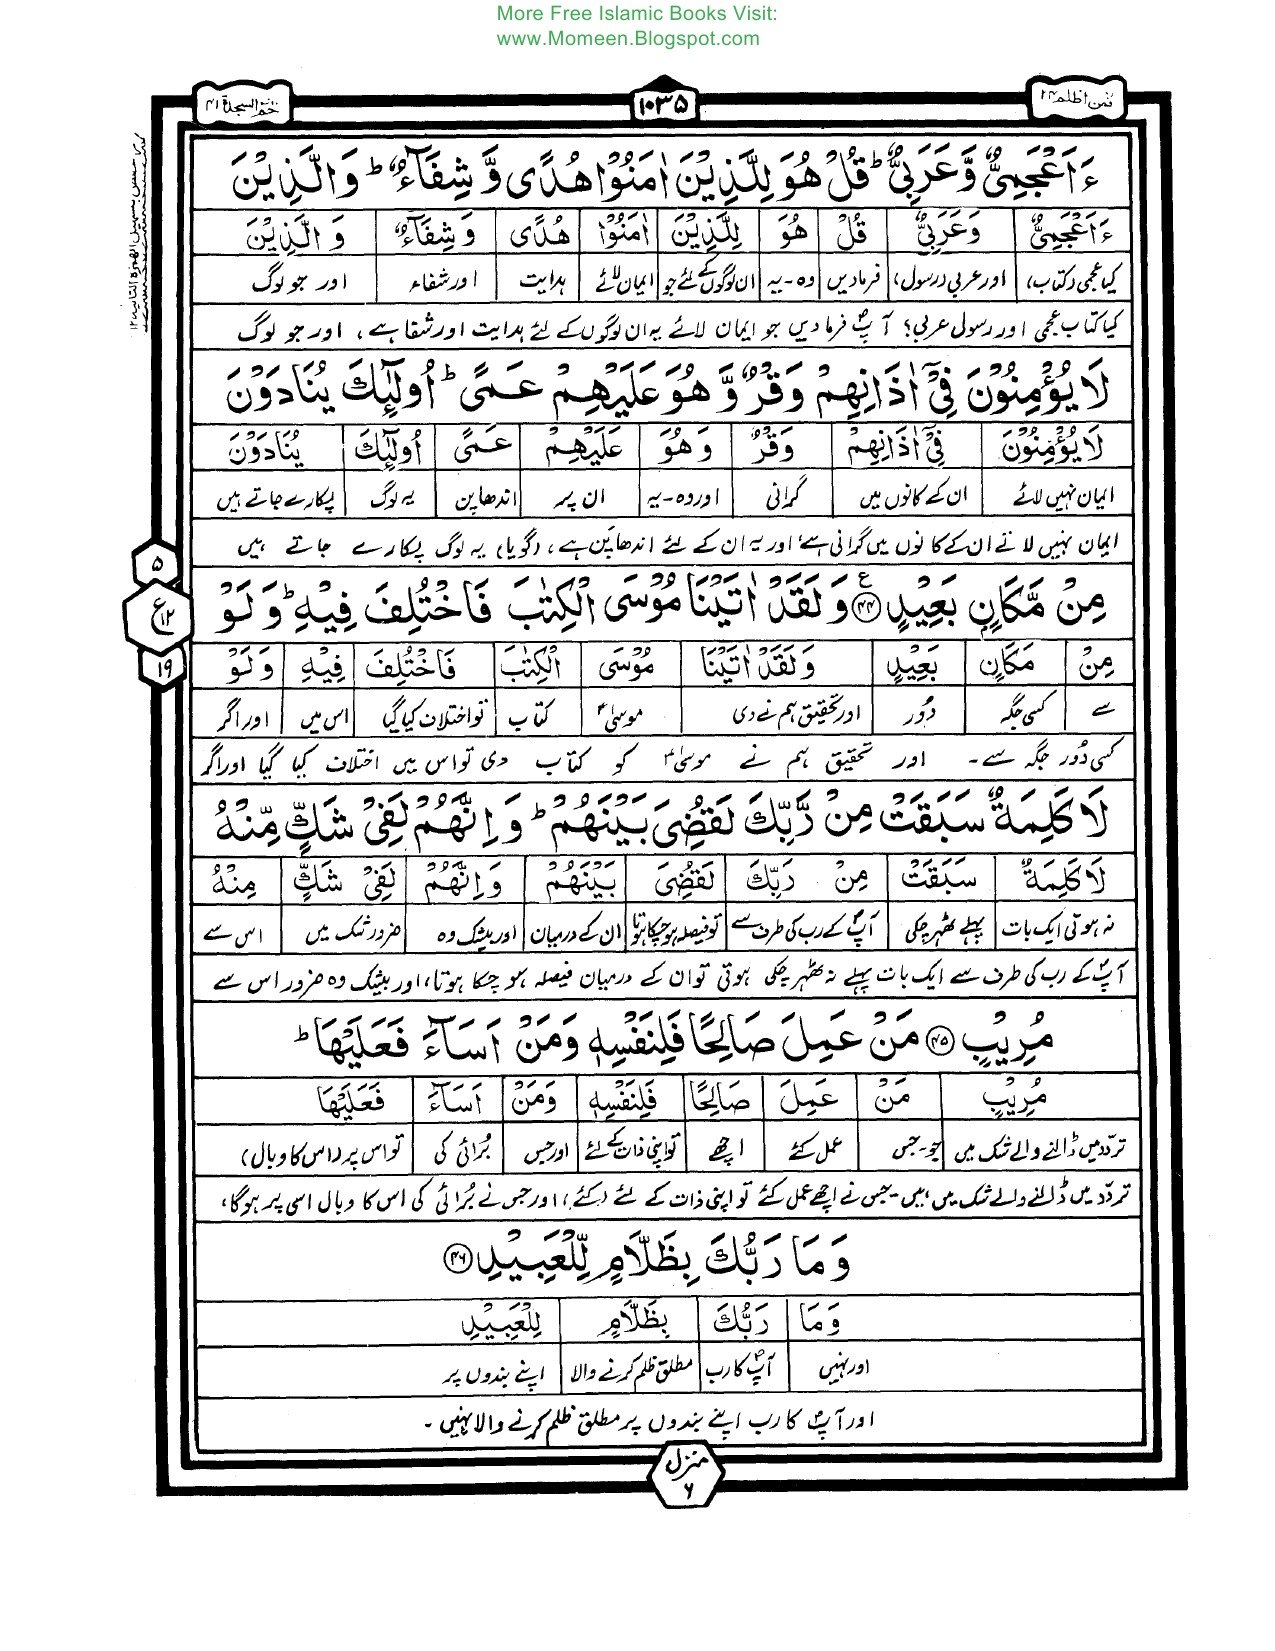 More Free Islamic Books Visit:
www.Momeen.Blogspot.com
فمن اظلم ۲۴
۱۰۳۵
حٰمٓ السجدة ۴۱
ءَاَعْجَمِیٌّ وَّعَرَبِیٌّ ؕ قُلْ هُوَ لِلَّذِیْنَ اٰمَنُوْا هُدًی وَّ شِفَآءٌ ؕ وَالَّذِیْنَ
ءَاَعْجَمِیٌّ وَعَرَبِیٌّ قُلْ هُوَ لِلَّذِیْنَ اٰمَنُوْا هُدًی وَشِفَآءٌ وَالَّذِیْنَ
کیا عجمی (کتاب) اور عربی (رسول) فرمادیں وہ-یہ ان لوگوں کے لئے جو ایمان لائے ہدایت اور شفاء اور جو لوگ
کیا کتاب عجمی اور رسول عربی؟ آپؐ فرمادیں جو ایمان لائے یہ ان لوگوں کے لئے ہدایت اور شفا ہے، اور جو لوگ
لَا یُؤْمِنُوْنَ فِیْٓ اٰذَانِهِمْ وَقْرٌ وَّ هُوَ عَلَیْهِمْ عَمًی ؕ اُولٰٓئِكَ یُنَادَوْنَ
لَا یُؤْمِنُوْنَ فِیْٓ اٰذَانِهِمْ وَقْرٌ وَهُوَ عَلَیْهِمْ عَمًی اُولٰٓئِكَ یُنَادَوْنَ
ایمان نہیں لائے ان کے کانوں میں گرانی اور وہ-یہ ان پر اندھاپن یہ لوگ پکارے جاتے ہیں
ایمان نہیں لاتے ان کے کانوں میں گرانی ہے اور یہ ان کے لئے اندھاپن ہے، (گویا) یہ لوگ پکارے جاتے ہیں
۵
مِنْ مَّكَانٍ بَعِیْدٍ ﴿۴۴﴾ وَلَقَدْ اٰتَیْنَا مُوْسَی الْكِتٰبَ فَاخْتُلِفَ فِیْهِ ؕ وَلَوْ
ع ۱۲
مِنْ مَكَانٍ بَعِیْدٍ وَلَقَدْ اٰتَیْنَا مُوْسَی الْكِتٰبَ فَاخْتُلِفَ فِیْهِ وَلَوْ
۱۹
سے کسی جگہ دُور اور تحقیق ہم نے دی موسیٰؑ کتاب تو اختلاف کیا گیا اس میں اور اگر
کسی دُور جگہ سے۔ اور تحقیق ہم نے موسیٰؑ کو کتاب دی تو اس میں اختلاف کیا گیا اور اگر
لَا كَلِمَةٌ سَبَقَتْ مِنْ رَّبِّكَ لَقُضِیَ بَیْنَهُمْ ؕ وَاِنَّهُمْ لَفِیْ شَكٍّ مِّنْهُ
لَا كَلِمَةٌ سَبَقَتْ مِنْ رَبِّكَ لَقُضِیَ بَیْنَهُمْ وَاِنَّهُمْ لَفِیْ شَكٍّ مِنْهُ
نہ ہوتی ایک بات پہلے ٹھہر چکی آپؐ کے رب کی طرف سے تو فیصلہ ہوچکا ہوتا ان کے درمیان اور بیشک وہ ضرور شک میں اس سے
آپؐ کے رب کی طرف سے ایک بات پہلے نہ ٹھہر چکی ہوتی تو ان کے درمیان فیصلہ ہو چکا ہوتا، اور بیشک وہ ضرور اس سے
مُرِیْبٍ ﴿۴۵﴾ مَنْ عَمِلَ صَالِحًا فَلِنَفْسِهٖ وَمَنْ اَسَآءَ فَعَلَیْهَا ؕ
مُرِیْبٍ مَنْ عَمِلَ صَالِحًا فَلِنَفْسِهٖ وَمَنْ اَسَآءَ فَعَلَیْهَا
تردّد میں ڈالنے والے شک میں جو-جس عمل کئے اچھے تو اپنی ذات کے لئے اور جس بُرائی کی تو اس پر (اس کا وبال)
تردّد میں ڈالنے والے شک میں ہیں۔ جس نے اچھے عمل کئے تو اپنی ذات کے لئے (کئے)، اور جس نے بُرائی کی اس کا وبال اسی پر ہوگا،
وَمَا رَبُّكَ بِظَلَّامٍ لِّلْعَبِیْدِ ﴿۴۶﴾
وَمَا رَبُّكَ بِظَلَّامٍ لِلْعَبِیْدِ
اور نہیں آپؐ کا رب مطلق ظلم کرنے والا اپنے بندوں پر
اور آپؐ کا رب اپنے بندوں پر مطلق ظلم کرنے والا نہیں۔
منزل
۶